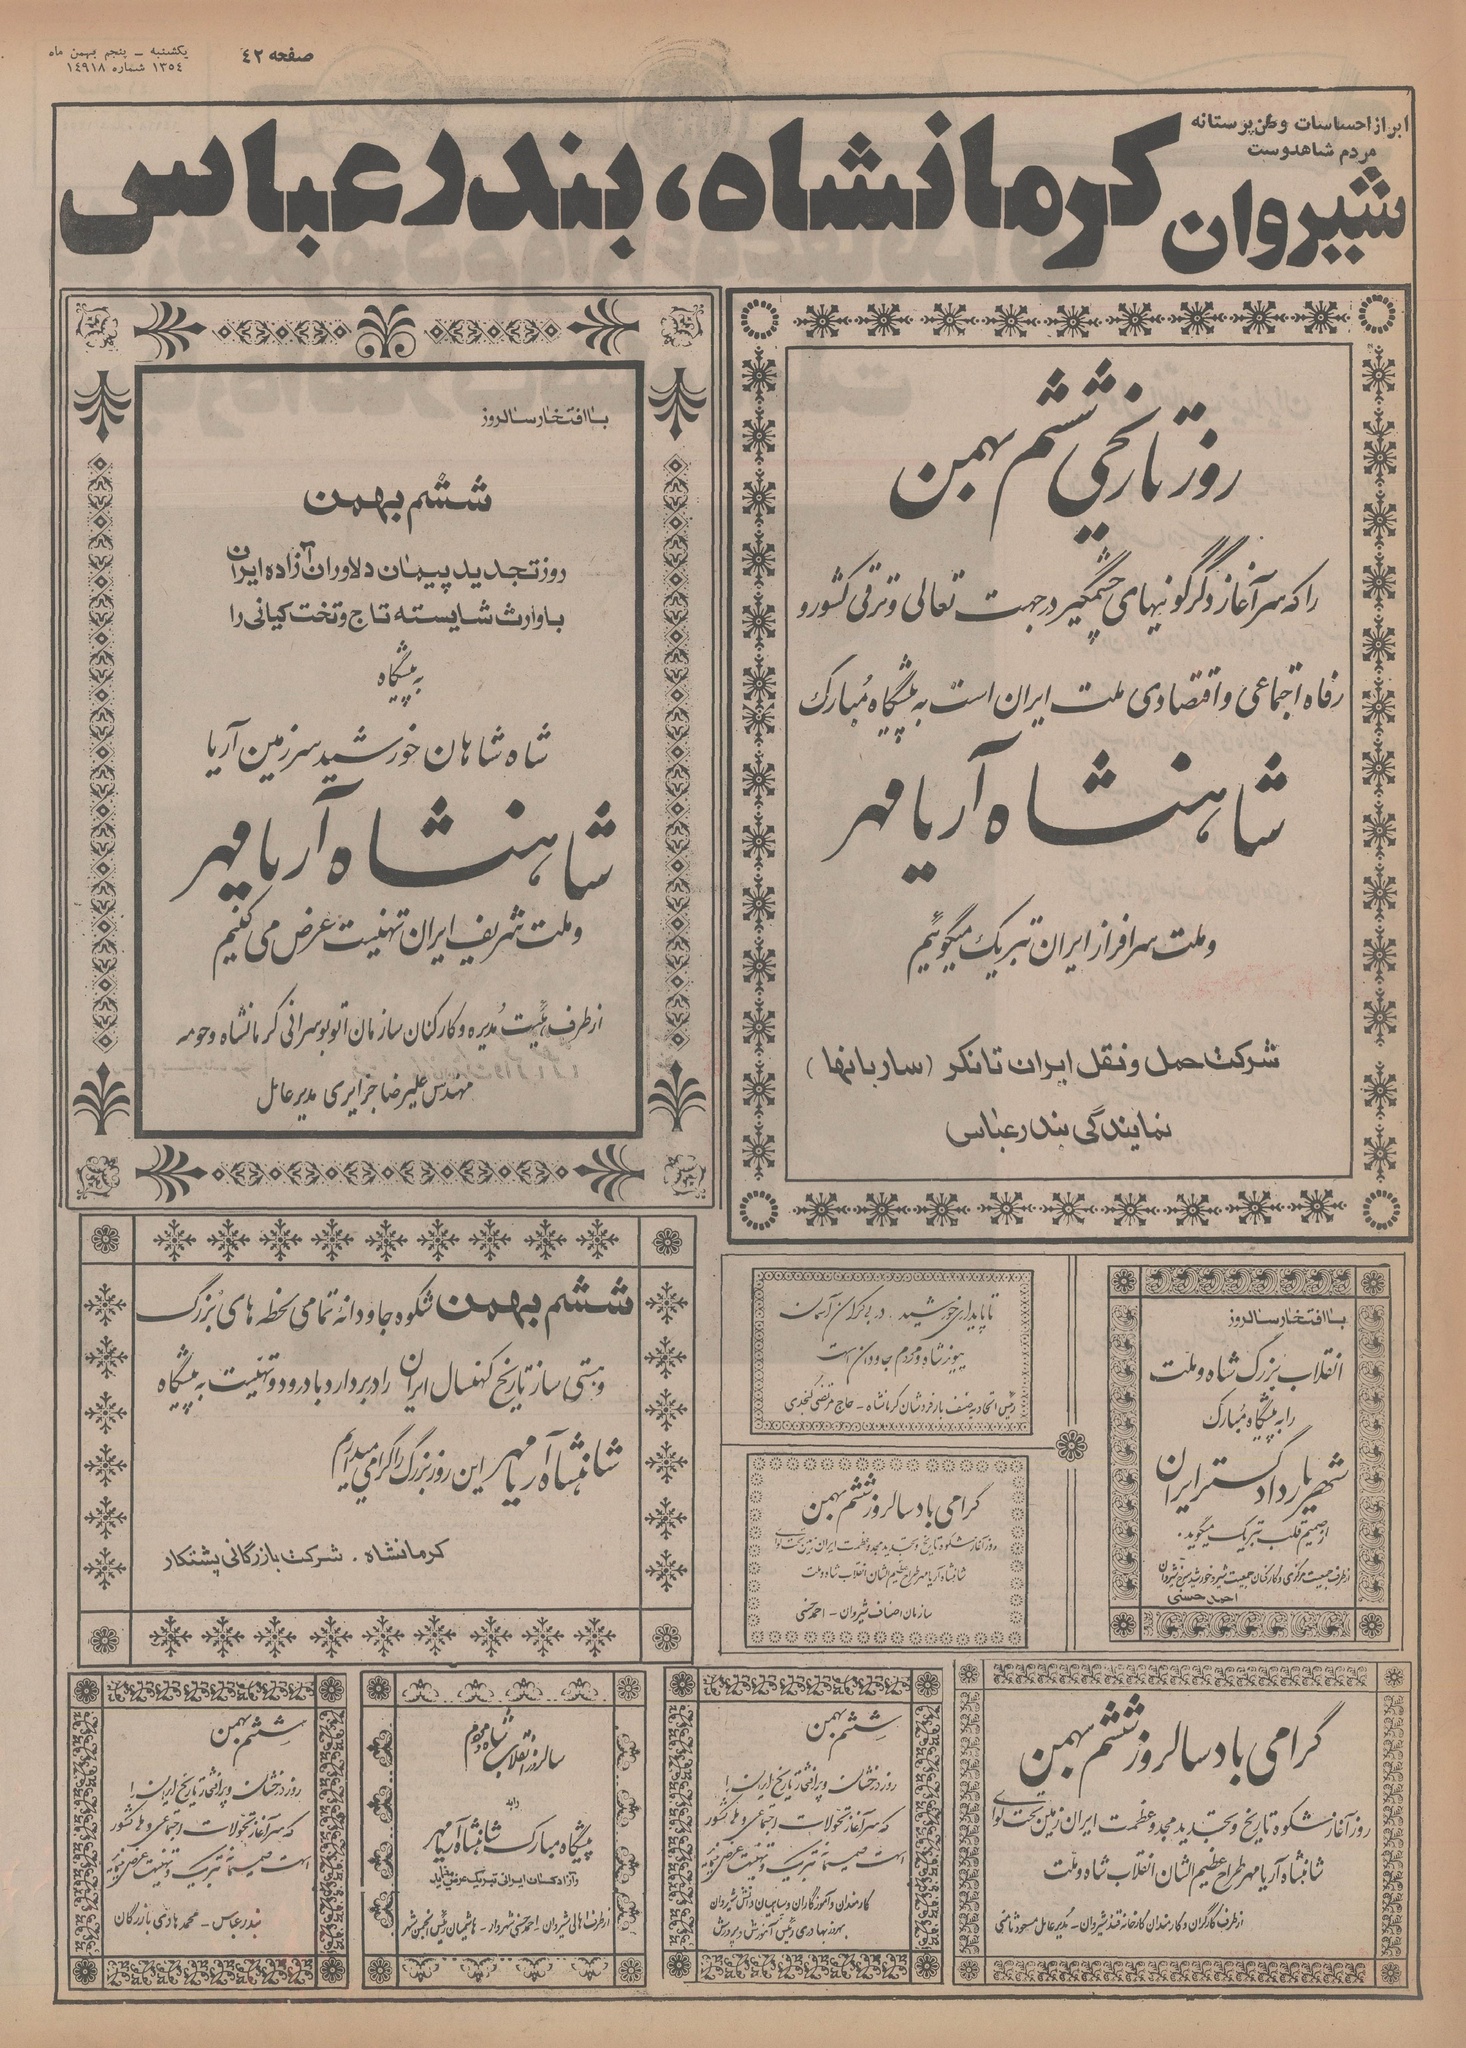 صفحه ٤٢
یکشنبه – پنجم بهمن ماه
١٣٥٤ شماره ١٤٩١٨
ابراز احساسات وطن پرستانه
مردم شاهدوست
شیروان کرمانشاه، بندرعباس
روز تاریخی ششم بهمن
را که سرآغاز دگرگونیهای چشمگیر در جهت تعالی و ترقی کشور و
رفاه اجتماعی و اقتصادی ملت ایران است به پیشگاه مبارک
شاهنشاه آریامهر
و ملت سرافراز ایران تبریک میگوئیم
شرکت حمل و نقل ایران تانکر (ساربانها)
نمایندگی بندرعباس
با افتخار سالروز
ششم بهمن
روز تجدید پیمان دلاوران آزاده ایران
با وارث شایسته تاج و تخت کیانی را
به پیشگاه
شاه شاهان خورشید سرزمین آریا
شاهنشاه آریامهر
و ملت شریف ایران تهنیت عرض می کنیم
از طرف هیئت مدیره و کارکنان سازمان اتوبوسرانی کرمانشاه و حومه
مهندس علیرضا جزایری مدیر عامل
ششم بهمن شکوه جاودانهٔ تمامی لحظه های بزرگ
و هستی ساز تاریخ کهنسال ایران را در بردارد با درود و تهنیت به پیشگاه
شاهنشاه آریامهر این روز بزرگ را گرامی میداریم
کرمانشاه . شرکت بازرگانی پشتکار
تا پایداری خورشید . در بی کران آسمان
پیوند شاه و مردم جاودان است
رئیس اتحادیه صنف بارفروشان کرمانشاه – حاج مرتضی گنجدی
گرامی باد سالروز ششم بهمن
روز آغاز شکوه تاریخ و تجدید مجد و عظمت ایران زمین تحت لوای
شاهنشاه آریامهر طراح عظیم الشان انقلاب شاه و ملت
سازمان اصناف شیروان – احمد حسنی
با افتخار سالروز
انقلاب بزرگ شاه و ملت
را به پیشگاه مبارک
شهریار دادگستر ایران
از صمیم قلب تبریک میگوید .
از طرف جمعیت مرکزی و کارکنان جمعیت شیر و خورشید سرخ شیروان
احمد حسنی
گرامی باد سالروز ششم بهمن
روز آغاز شکوه تاریخ و تجدید مجد و عظمت ایران زمین تحت لوای
شاهنشاه آریامهر طراح عظیم الشان انقلاب شاه و ملت
از طرف کارگران و کارمندان کارخانه قند شیروان – مدیر عامل مسعود ثامنی
ششم بهمن
روز درخشان و پر افتخار تاریخ ایران را
که سرآغاز تحولات اجتماعی و ملی کشور
است صمیمانه تبریک و تهنیت عرض مینماید
کارمندان و آموزگاران و سپاهیان دانش شیروان
بهروز بهادری رئیس آموزش و پرورش
سالروز انقلاب شاه و مردم
را به
پیشگاه مبارک شاهنشاه آریامهر
و آزادگان ایرانی تبریک عرض مینماید
از طرف اهالی شیروان – احمد حسنی شهردار – هاشمیان رئیس انجمن شهر
ششم بهمن
روز درخشان و پر افتخار تاریخ ایران را
که سرآغاز تحولات اجتماعی و ملی کشور
است صمیمانه تبریک و تهنیت عرض مینماید
بندرعباس – محمد هادی بازرگان